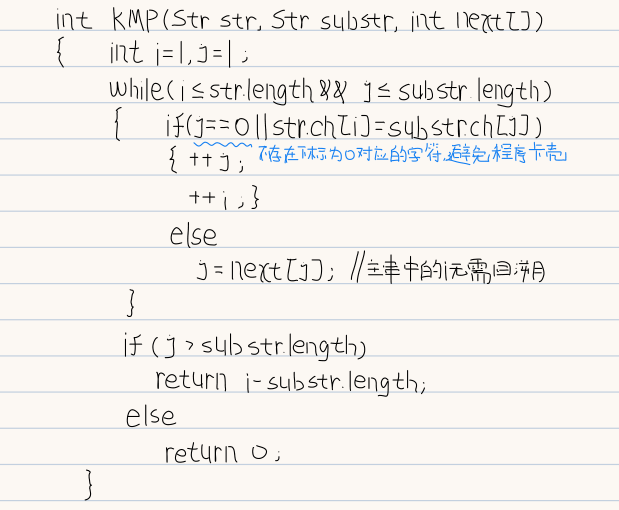 int KMP(Str str, Str substr, int next[])
{ int i=1,j=1;
while(i≤str.length && j≤substr.length)
{ if(j==0||str.ch[i]=substr.ch[j])
{ ++j; 不存在下标为0对应的字符,避免程序卡壳
++i;}
else
j=next[j]; //主串中的i无需回溯
}
if(j>substr.length)
return i-substr.length;
else
return 0;
}